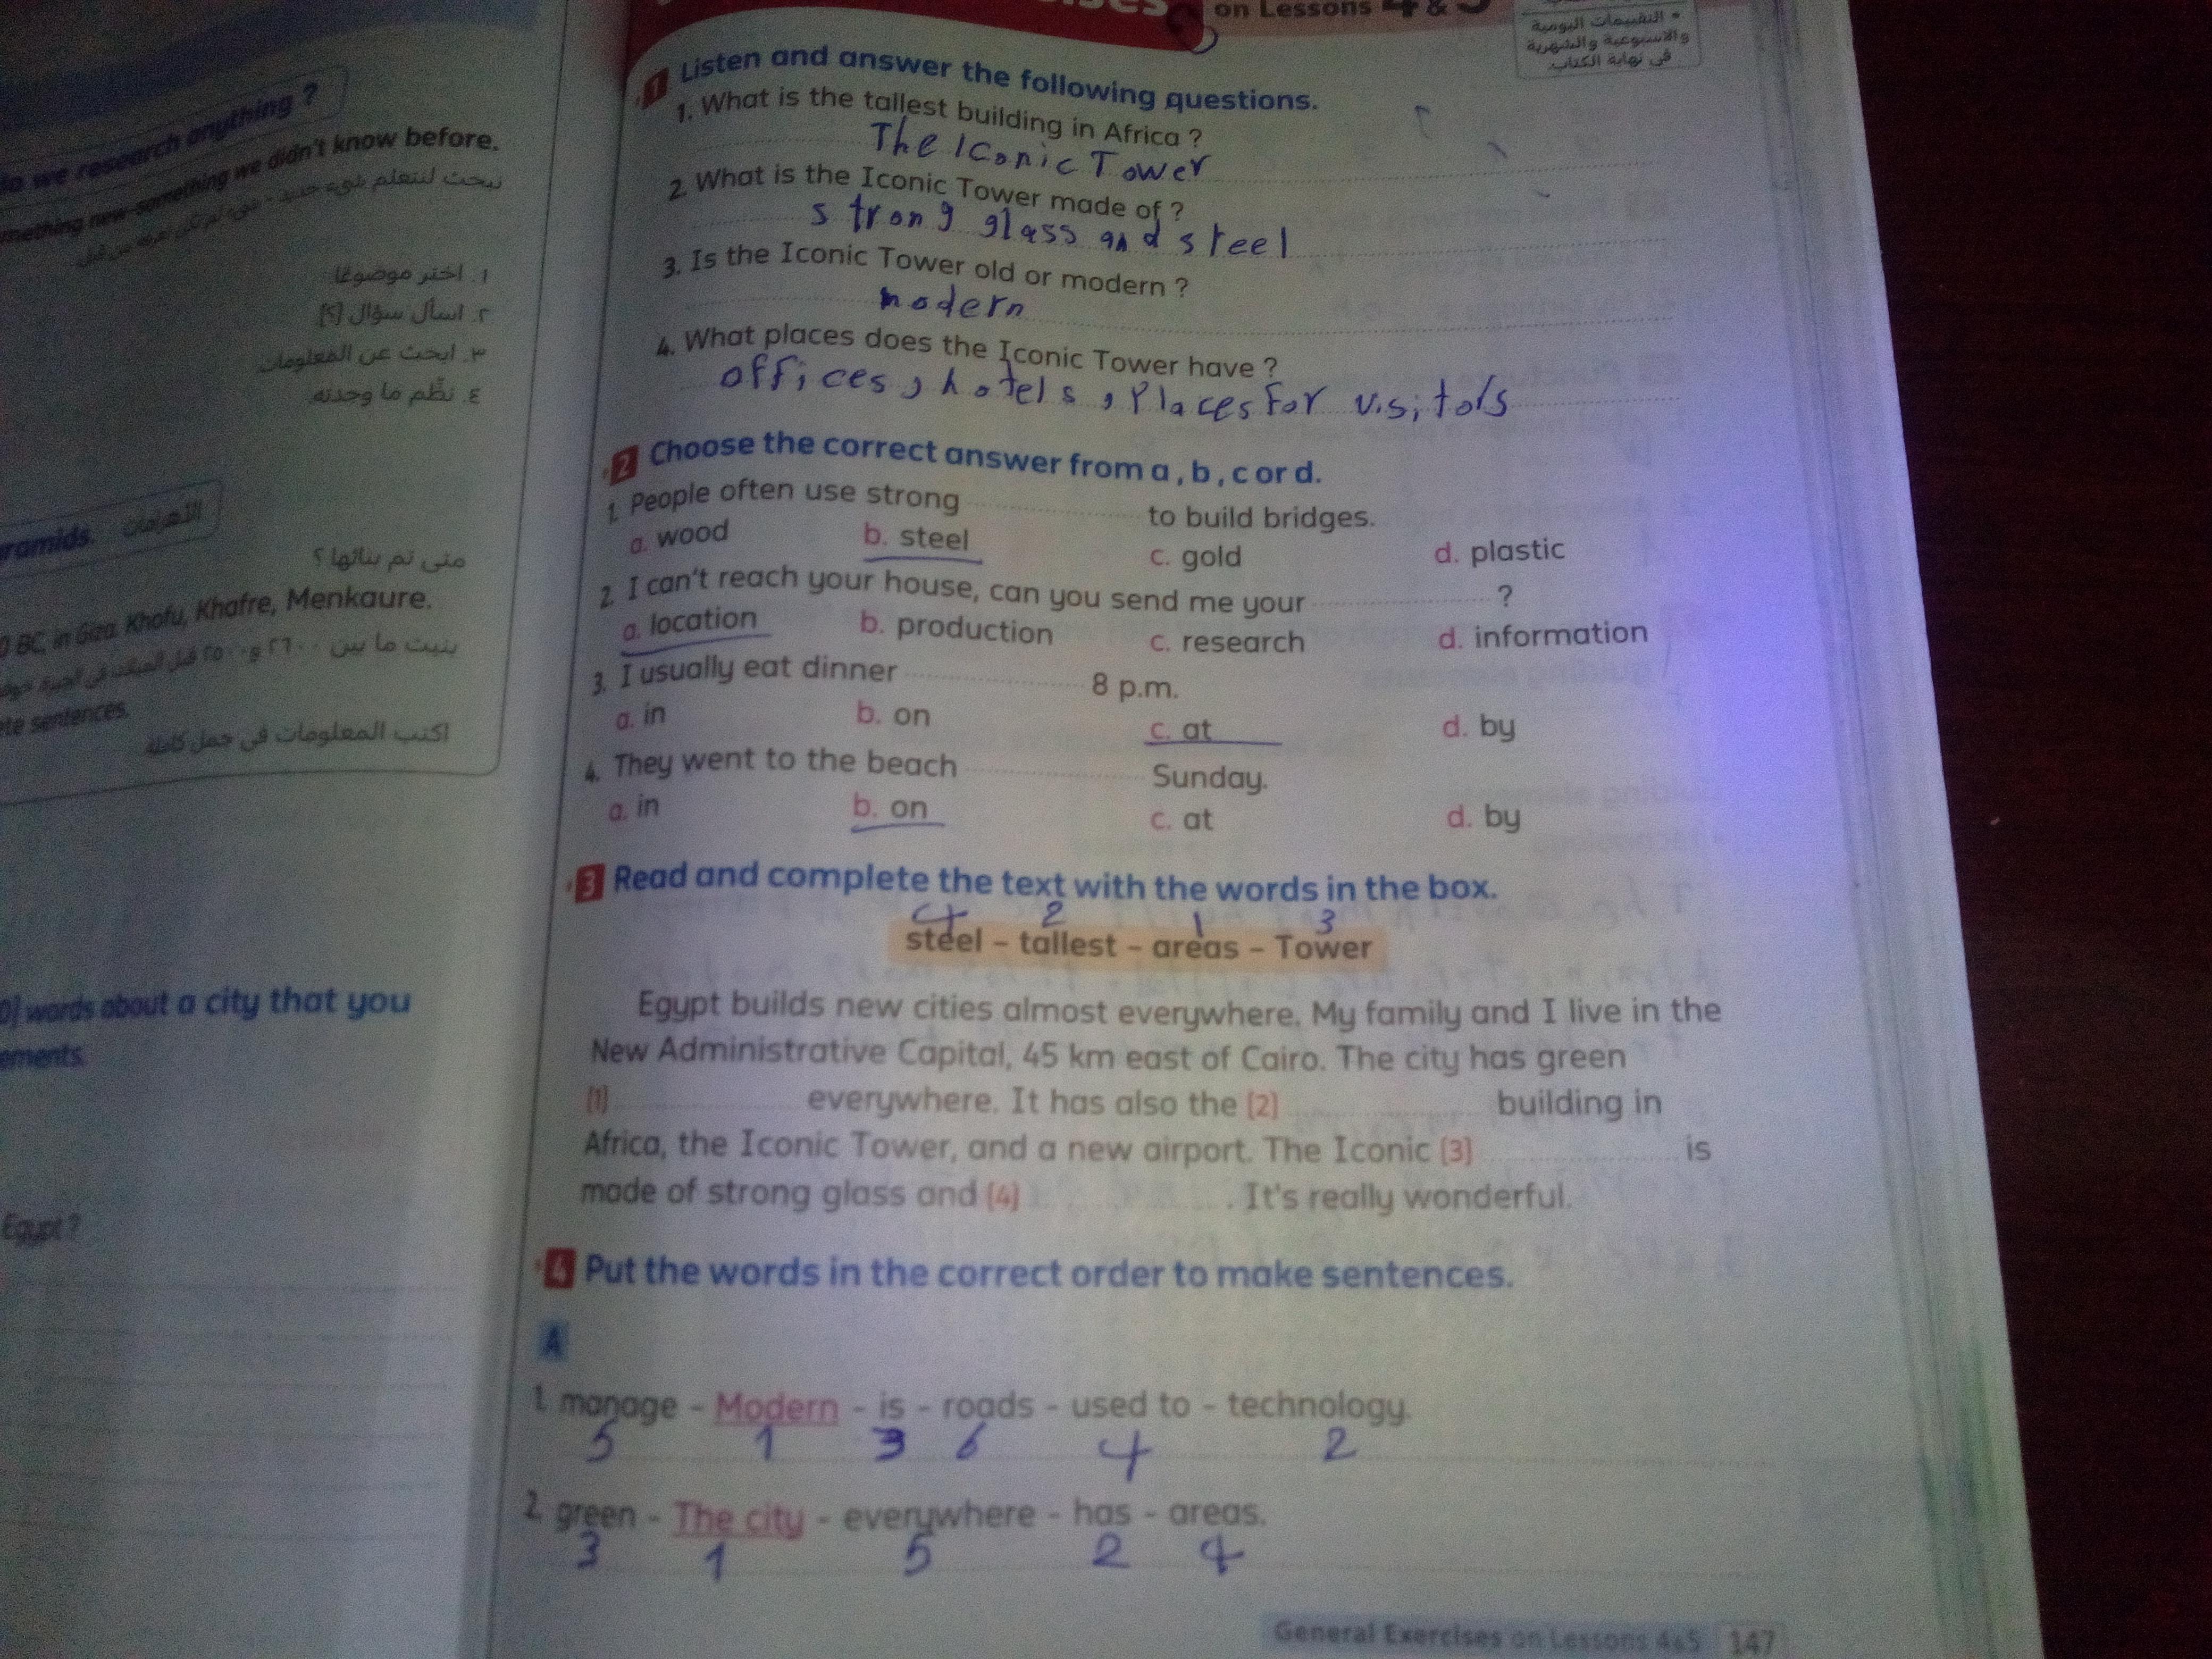 do we research anything ?
something new-something we didn't know before.
١. اختر موضوعًا
٢. اسأل سؤال [؟]
٣. ابحث عن المعلومات
٤. نظِّم ما وجدته.
الأهرامات
متى تم بنائها ؟
BC, in Giza. Khufu, Khafre, Menkaure.
sentences.
اكتب المعلومات فى جمل كاملة
words about a city that you
Egypt ?
on Lessons 4 & 5
• التقييمات اليومية
والأسبوعية والشهرية
فى نهاية الكتاب
1 Listen and answer the following questions.
1. What is the tallest building in Africa ?
The Iconic Tower
2. What is the Iconic Tower made of ?
strong glass and steel
3. Is the Iconic Tower old or modern ?
modern
4. What places does the Iconic Tower have ?
offices, hotels, Places For visitors
2 Choose the correct answer from a , b , c or d.
1. People often use strong to build bridges.
a. wood b. steel c. gold d. plastic
2. I can't reach your house, can you send me your ?
a. location b. production c. research d. information
3. I usually eat dinner 8 p.m.
a. in b. on c. at d. by
4. They went to the beach Sunday.
a. in b. on c. at d. by
3 Read and complete the text with the words in the box.
4 2 1 3
steel – tallest – areas – Tower
Egypt builds new cities almost everywhere. My family and I live in the
New Administrative Capital, 45 km east of Cairo. The city has green
(1) everywhere. It has also the (2) building in
Africa, the Iconic Tower, and a new airport. The Iconic (3) is
made of strong glass and (4) . It's really wonderful.
4 Put the words in the correct order to make sentences.
A
1. manage – Modern – is – roads – used to – technology.
5 1 3 6 4 2
2. green – The city – everywhere – has – areas.
3 1 5 2 4
General Exercises on Lessons 4&5 147